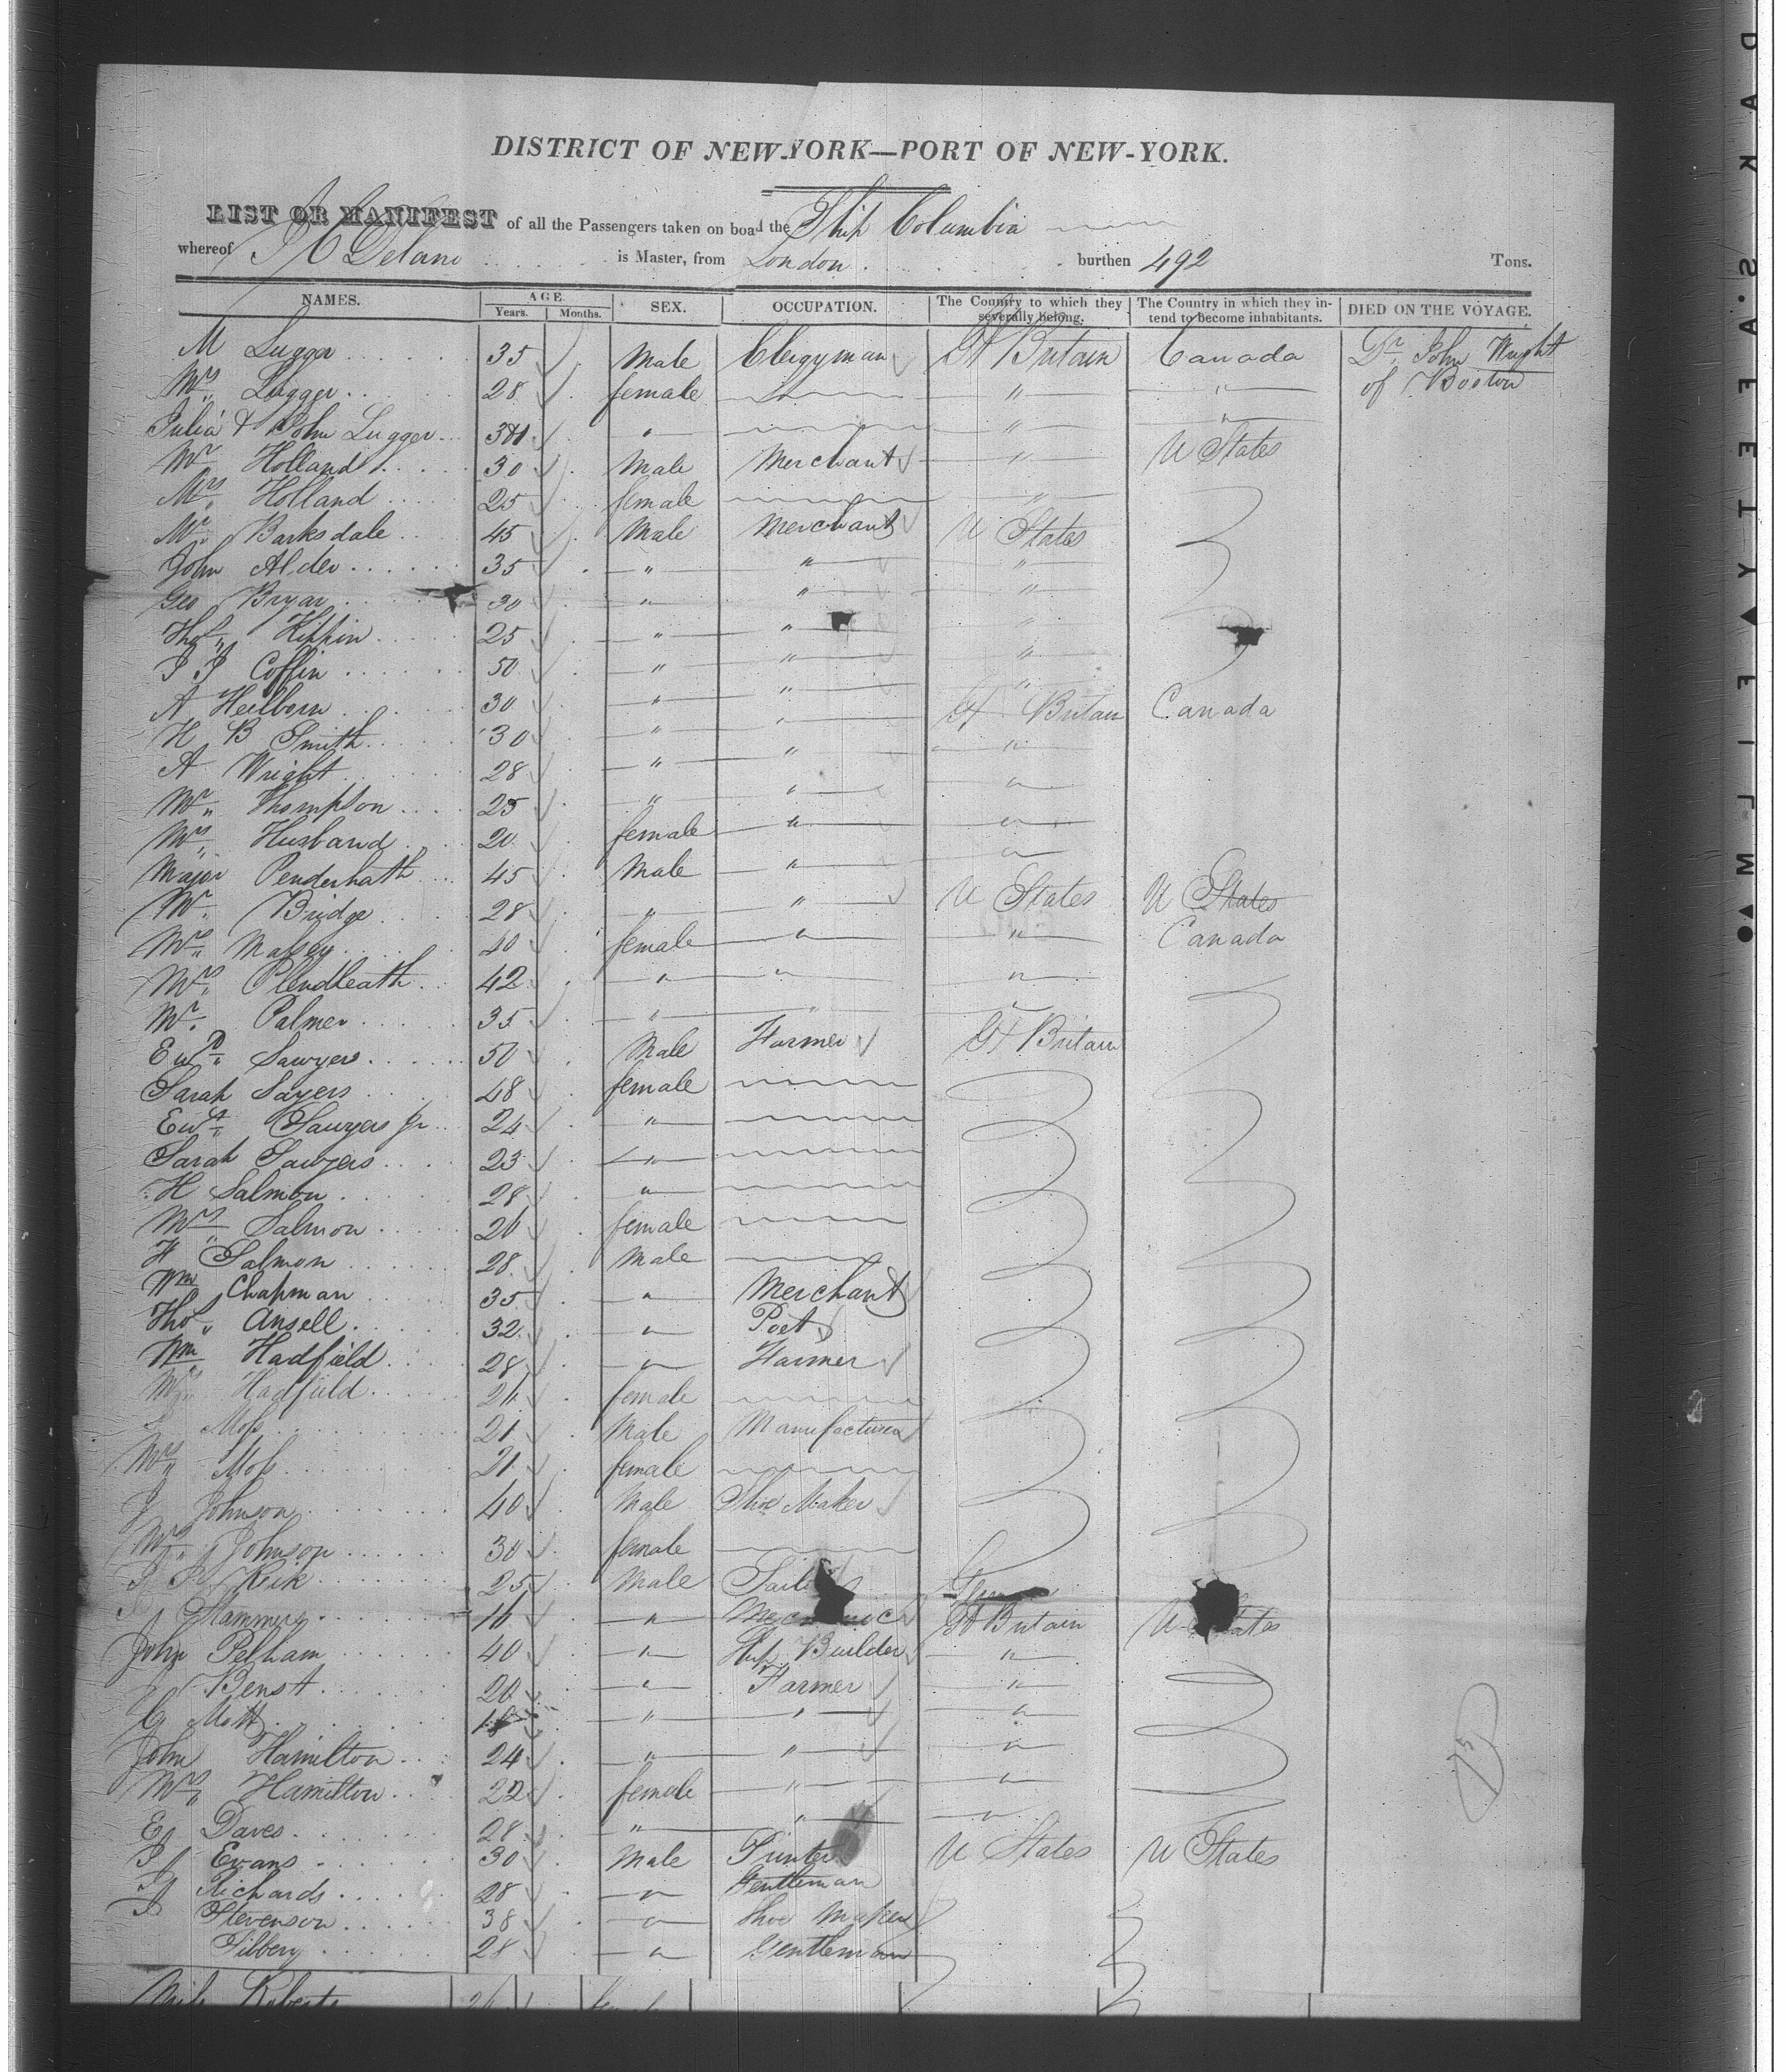 DISTRICT OF NEW-YORK—PORT OF NEW-YORK.
LIST OR MANIFEST of all the Passengers taken on board the Ship Columbia
whereof Delano is Master, from London burthen 492 Tons.
NAMES. AGE. SEX. OCCUPATION. The Country to which they severally belong. The Country in which they intend to become inhabitants. DIED ON THE VOYAGE.
Years. Months.
M Lugger 35 Male Clergyman Gt Britain Canada Dr. John Wright
Mrs Lugger 28 female " " of Boston
Julia & John Lugger " " "
Mr Holland 30 Male Merchant " U States
Mrs Holland 25 female "
Mr Barksdale 45 Male Merchant U States
John Alder 35 " " "
Geo Bryar 30 " " "
Thos Kippin 25 " " "
Coffin 50 " " "
A Heilborn 30 " " "
H B Smith 30 " " Gt Britain Canada
A Wright 28 " " "
Mr Thompson 25 " " "
Mrs Husband 20 female " "
Major Penderhath 45 Male " "
Mr Bridge 28 " " U States U States
Mrs Malsey 40 female " " Canada
Mrs Plendleath 42 " " "
Mr Palmer 35 " " "
Ewd Sawyers 50 Male Farmer Gt Britain
Sarah Sayers 48 female
Ewd Sawyers Jr 24 "
Sarah Sawyers 23 "
H Salmon 28 "
Mrs Salmon 26 female
H Salmon 28 Male
Wm Chapman 35 " Merchant
Thos Ansell 32 " Poet
Wm Hadfield 28 " Farmer
Mrs Hadfield 26 female
Moss 21 Male Manufacturer
Mrs Moss 21 female
J Johnson 40 Male Shoe Maker
Mrs Johnson 30 female
Kik 25 Male
Stammers 16 " Gt Britain U States
John Pelham 40 " Ship Builder "
Benst 20 " Farmer "
G Mott " " "
John Hamilton 24 " " "
Mrs Hamilton 22 female " "
E Daves 28 " " "
Evans 30 Male Printer U States U States
Richards 28 " Gentleman
Stevenson 38 " Shoe Maker
Tilbery 28 " Gentleman
Miss Roberts 26